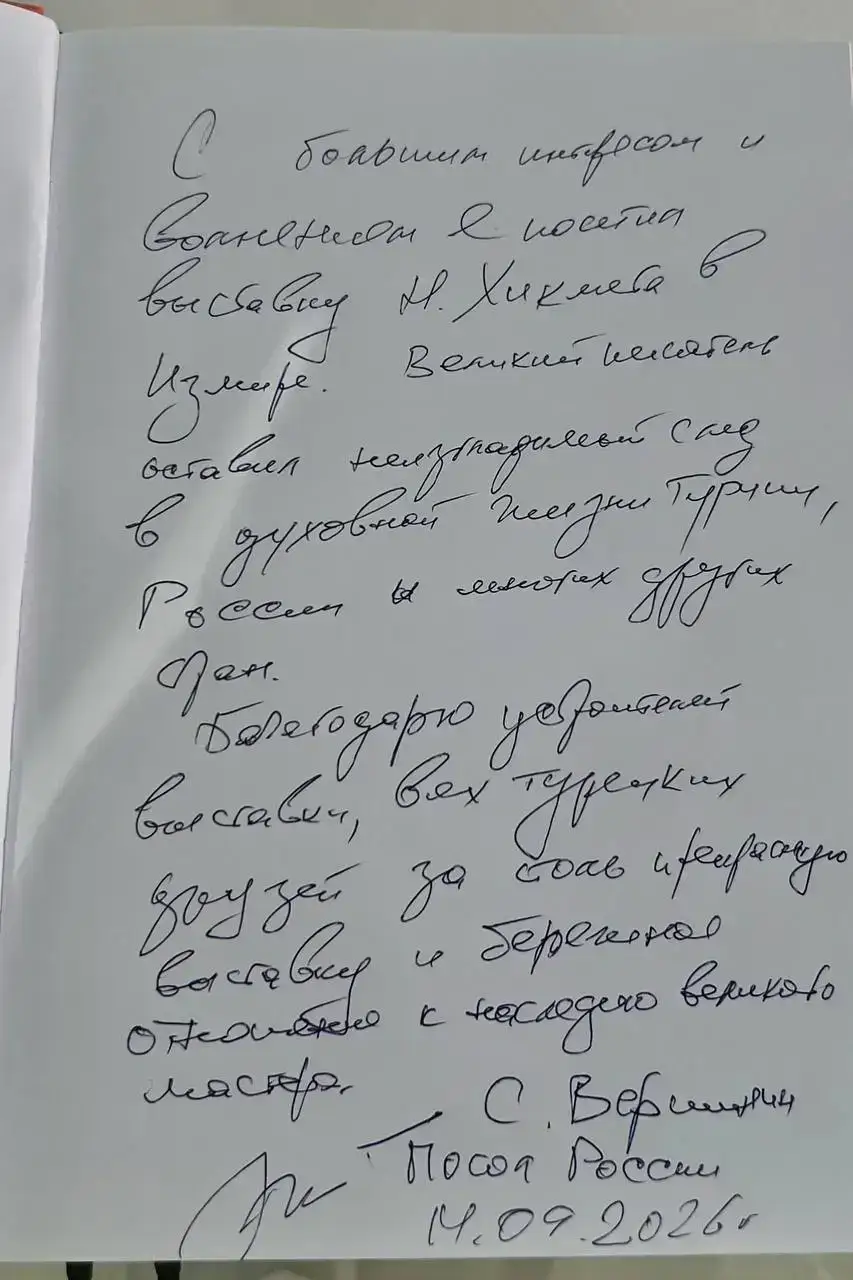 С большим интересом и
волнением я посетил
выставку Н. Хикмета в
Измире. Великий писатель
оставил неизгладимый след
в духовной жизни Турции,
России и многих других
стран.
Благодарю устроителей
выставки, всех турецких
друзей за столь прекрасную
выставку и бережное
отношение к наследию великого
мастера.
С. Вершинин
Посол России
14.09.2026г